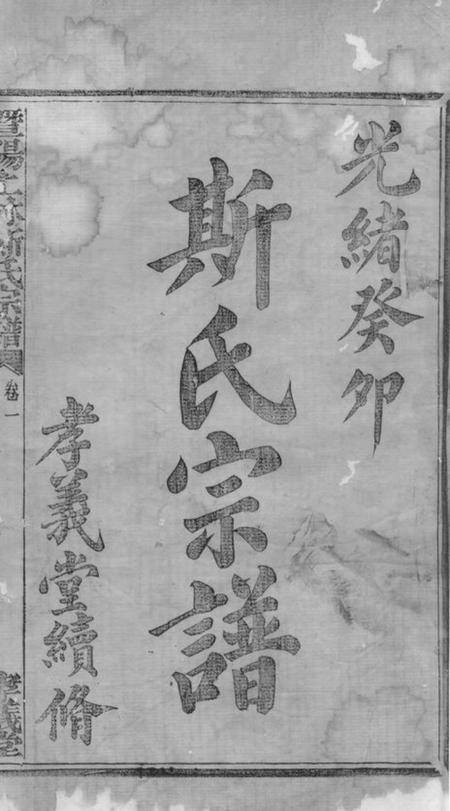 光緒癸卯
斯氏宗譜
孝義堂續脩
暨陽上林斯氏宗譜
卷一
孝義堂